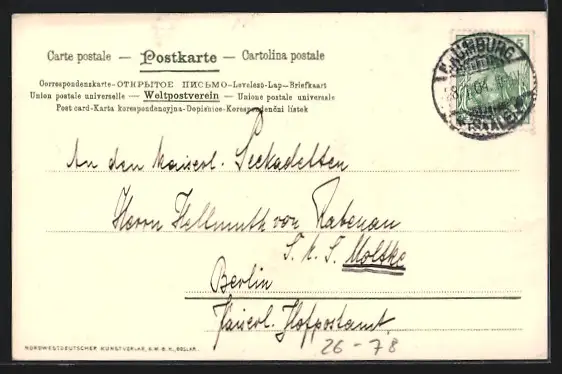 Carte postale — Postkarte — Cartolina postale
Correspondenskarte–ОТКРЫТОЕ ПИСЬМО–Levelező-Lap–Briefkaart
Union postale universelle — Weltpostverein — Unione postale universale
Post card-Karta korespondencyjna-Dopisnice-Korespondenční lístek
5
NAUMBURG
(SAALE)
An den Kaiserl. Seekadetten
Herrn Hellmuth von Rabenau
S. M. S. Moltke
Berlin
Kaiserl. Hofpostamt.
26-78
NORDWESTDEUTSCHER KUNSTVERLAG, G.M.B.H.,